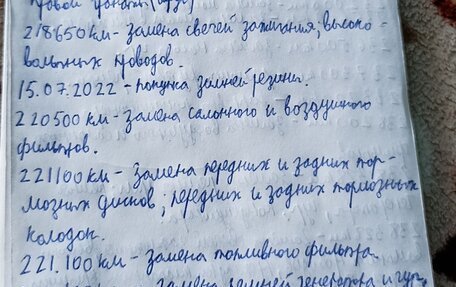 218650км - замена свечей зажигания, высоко-
вольтных проводов.
15.07.2022 - покупка зимней резины.
220500 км - замена салонного и воздушного
фильтров.
221100 км - замена передних и задних тор-
мозных дисков; передних и задних тормозных
колодок.
221.100 км - замена топливного фильтра.
замена ремней генератора и гур,